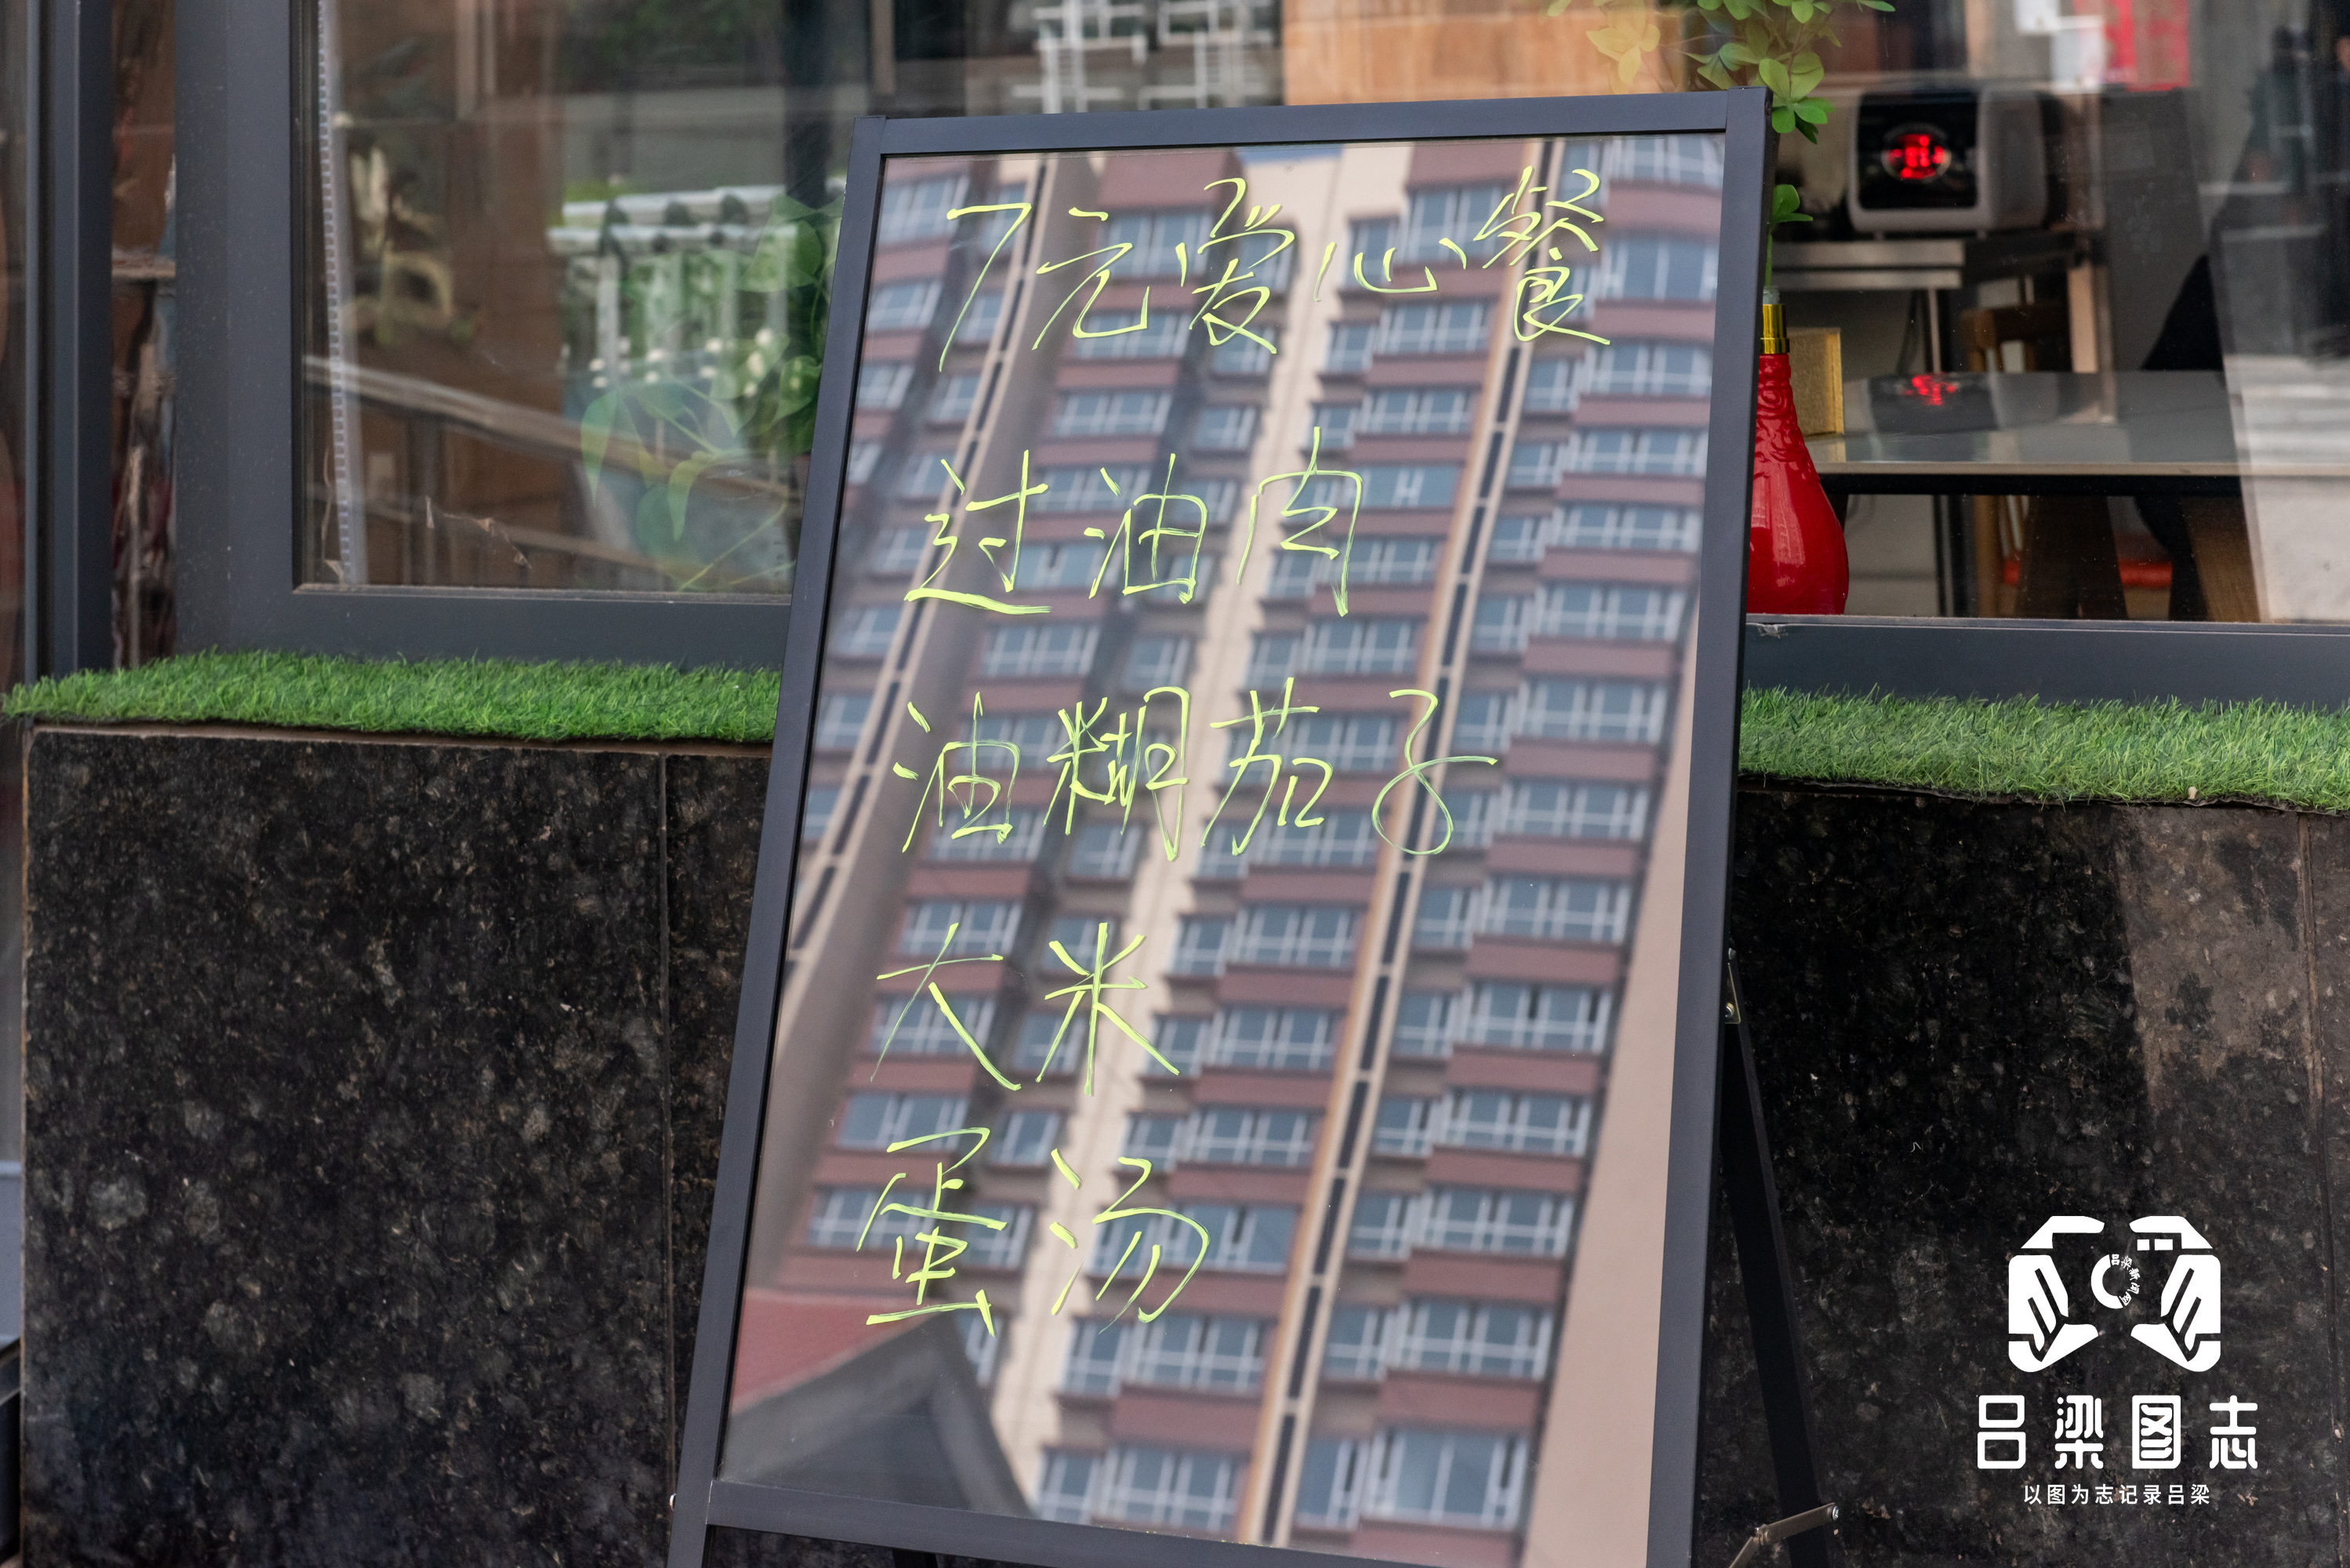 7元爱心餐
过油肉
油糊茄子
大米
蛋汤
吕梁新闻网
吕梁图志
以图为志记录吕梁